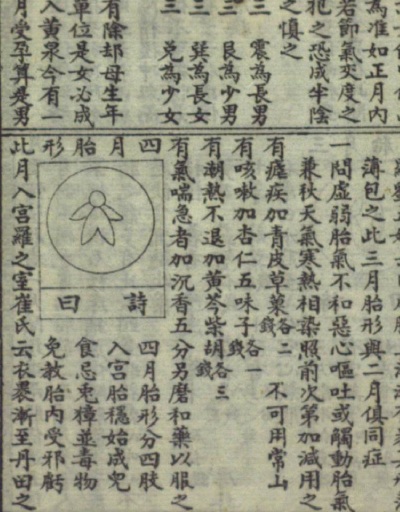 為准如正月內
若節氣交度之
犯之恐成半陰
之慎之
三 震為長男
三 艮為少男
三 巽為長女
三 兌為少女
有除却母生年
單位是女必成
入黃泉今有一
月受孕算是男
薄包之此三月胎形與二月俱同症
一問虛弱胎氣不和惡心嘔吐或觸動胎氣
兼秋天氣寒熱相染照前次第加減用之
有瘧疾加青皮草菓各二錢 不可用常山
有咳嗽加杏仁五味子各一錢
有潮熱不退加黃芩柴胡各三錢
有氣喘急者加沉香五分另磨和藥以服之
四月胎形
詩曰
四月胎形分四肢
入宮胎穩始成兒
食忌兔獐並毒物
免教胎內受邪虧
此月入宮羅之室崔氏云衣裹漸至丹田之